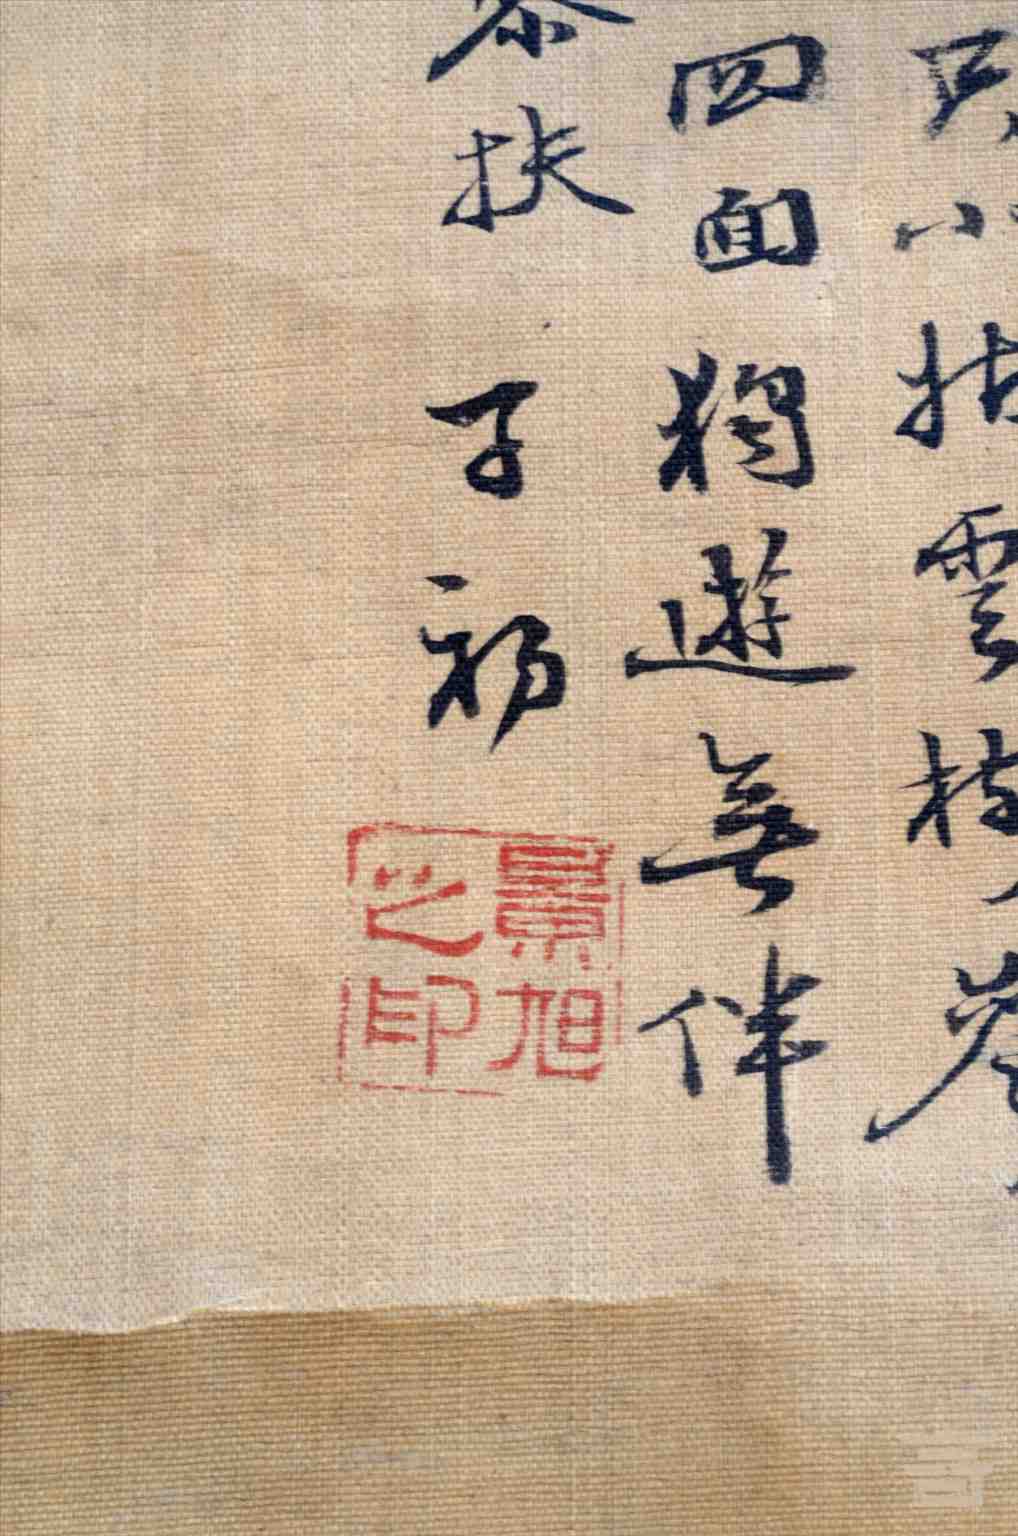 小雲
四面獨遊無伴
扶子初
景旭之印